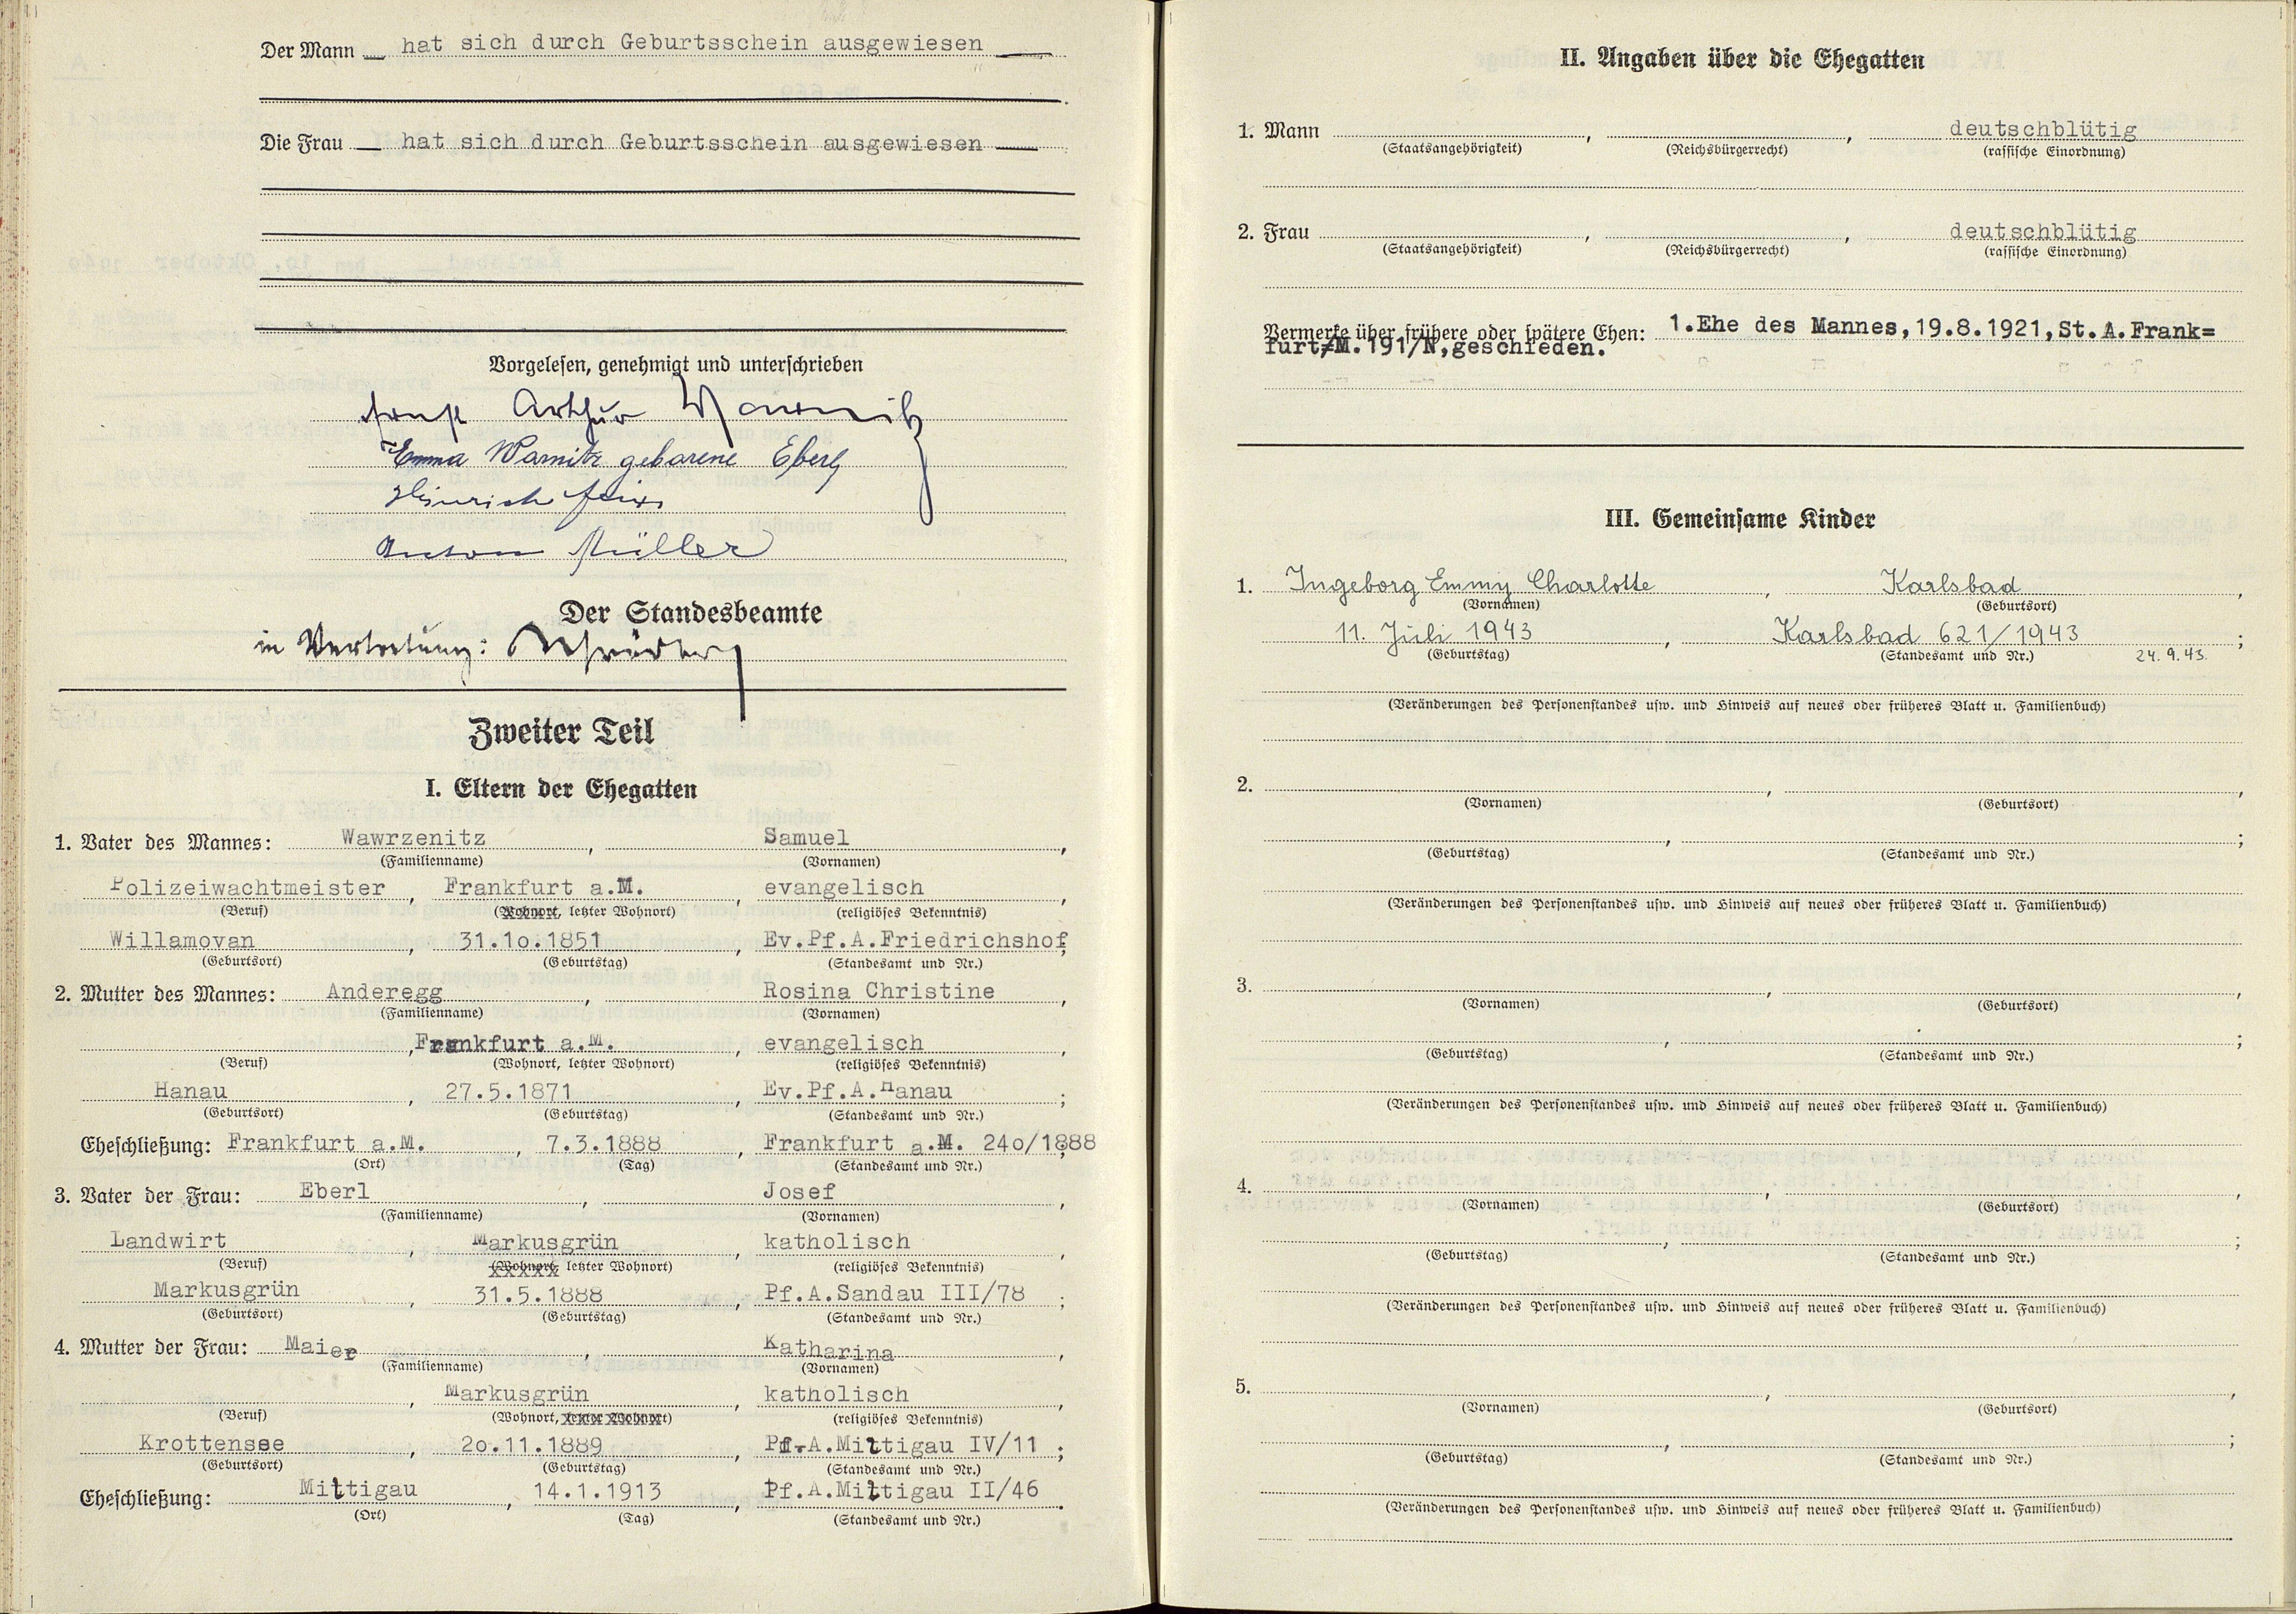 Der Mann hat sich durch Geburtsschein ausgewiesen
Die Frau hat sich durch Geburtsschein ausgewiesen
Vorgelesen, genehmigt und unterschrieben
Arthur
Emma Warnitz geborene Eberl
Heinrich
Anton Müller
Der Standesbeamte
in Vertretung:
Zweiter Teil
I. Eltern der Ehegatten
1. Vater des Mannes: Wawrzenitz, Samuel,
(Familienname) (Vornamen)
Polizeiwachtmeister, Frankfurt a.M., evangelisch,
(Beruf) (Wohnort, letzter Wohnort) (religiöses Bekenntnis)
Willamovan, 31.1o.1851, Ev.Pf.A.Friedrichshof;
(Geburtsort) (Geburtstag) (Standesamt und Nr.)
2. Mutter des Mannes: Anderegg, Rosina Christine,
(Familienname) (Vornamen)
, Frankfurt a.M., evangelisch,
(Beruf) (Wohnort, letzter Wohnort) (religiöses Bekenntnis)
Hanau, 27.5.1871, Ev.Pf.A.Hanau;
(Geburtsort) (Geburtstag) (Standesamt und Nr.)
Eheschließung: Frankfurt a.M., 7.3.1888, Frankfurt a.M. 24o/1888;
(Ort) (Tag) (Standesamt und Nr.)
3. Vater der Frau: Eberl, Josef,
(Familienname) (Vornamen)
Landwirt, Markusgrün, katholisch,
(Beruf) (Wohnort, letzter Wohnort) (religiöses Bekenntnis)
Markusgrün, 31.5.1888, Pf.A.Sandau III/78;
(Geburtsort) (Geburtstag) (Standesamt und Nr.)
4. Mutter der Frau: Maier, Katharina,
(Familienname) (Vornamen)
, Markusgrün, katholisch,
(Beruf) (Wohnort, letzter Wohnort) (religiöses Bekenntnis)
Krottensee, 2o.11.1889, Pf.A.Mittigau IV/11;
(Geburtsort) (Geburtstag) (Standesamt und Nr.)
Eheschließung: Mittigau, 14.1.1913, Pf.A.Mittigau II/46.
(Ort) (Tag) (Standesamt und Nr.)
II. Angaben über die Ehegatten
1. Mann , , deutschblütig
(Staatsangehörigkeit) (Reichsbürgerrecht) (rassische Einordnung)
2. Frau , , deutschblütig
(Staatsangehörigkeit) (Reichsbürgerrecht) (rassische Einordnung)
Vermerke über frühere oder spätere Ehen: 1.Ehe des Mannes,19.8.1921,St.A.Frank=
furt/M.191/N,geschieden.
III. Gemeinsame Kinder
1. Ingeborg Emmy Charlotte, Karlsbad,
(Vornamen) (Geburtsort)
11. Juli 1943, Karlsbad 621/1943;
(Geburtstag) (Standesamt und Nr.) 24.9.43.
(Veränderungen des Personenstandes usw. und Hinweis auf neues oder früheres Blatt u. Familienbuch)
2. , ,
(Vornamen) (Geburtsort)
, ;
(Geburtstag) (Standesamt und Nr.)
(Veränderungen des Personenstandes usw. und Hinweis auf neues oder früheres Blatt u. Familienbuch)
3. , ,
(Vornamen) (Geburtsort)
, ;
(Geburtstag) (Standesamt und Nr.)
(Veränderungen des Personenstandes usw. und Hinweis auf neues oder früheres Blatt u. Familienbuch)
4. , ,
(Vornamen) (Geburtsort)
, ;
(Geburtstag) (Standesamt und Nr.)
(Veränderungen des Personenstandes usw. und Hinweis auf neues oder früheres Blatt u. Familienbuch)
5. , ,
(Vornamen) (Geburtsort)
, ;
(Geburtstag) (Standesamt und Nr.)
(Veränderungen des Personenstandes usw. und Hinweis auf neues oder früheres Blatt u. Familienbuch)